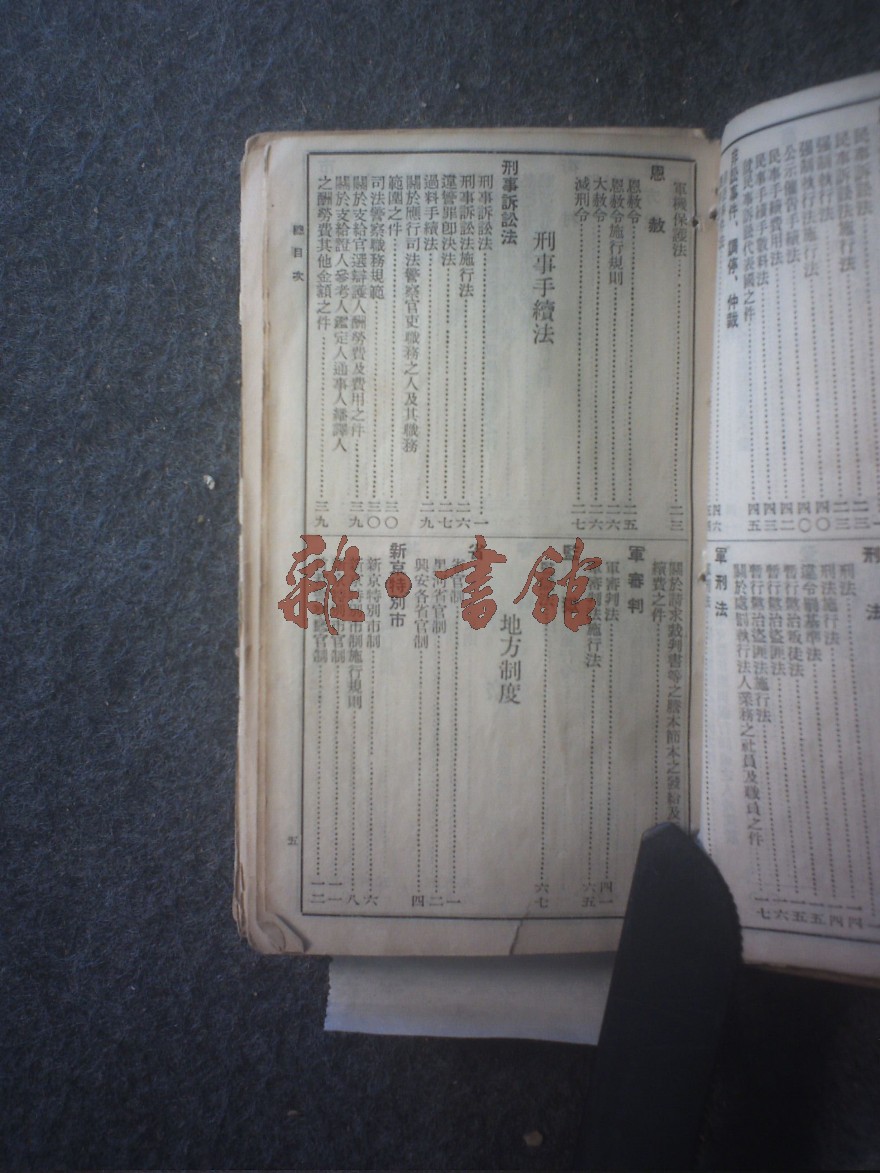 民事訴訟法施行法
強制執行法
強制執行法施行法
公示催告手續法
民事手續費用法
民事手續手數料法
就民事訴訟代表國之件
非訟事件、調停、仲裁
刑法
刑法
刑法施行法
暫行懲治叛徒法
暫行懲治盜匪法
暫行懲治盜匪法施行法
關於處罰執行法人業務之社員及職員之件
軍刑法
軍機保護法 二三
恩赦
恩赦令 二五
恩赦令施行規則 二六
大赦令 二六
減刑令 二七
刑事手續法
刑事訴訟法
刑事訴訟法 一
刑事訴訟法施行法 二六
違警罪卽決法 二七
過料手續法 二九
關於應行司法警察官吏職務之人及其職務
範圍之件 三〇
司法警察職務規範 三〇
關於支給官選辯護人酬勞費及費用之件 三九
關於支給證人參考人鑑定人通事人繙譯人
之酬勞費其他金額之件 三九
關於請求裁判書等之謄本節本之發給及
續費之件
軍審判
軍審判法 四一
軍審判法施行法 六五
六七
地方制度
省
省官制 一
黑河省官制 二
興安各省官制 四
新京特別市
新京特別市制 六
新京特別市制施行規則 八
官制 一一
官制 一二
總目次
五
雜·書館